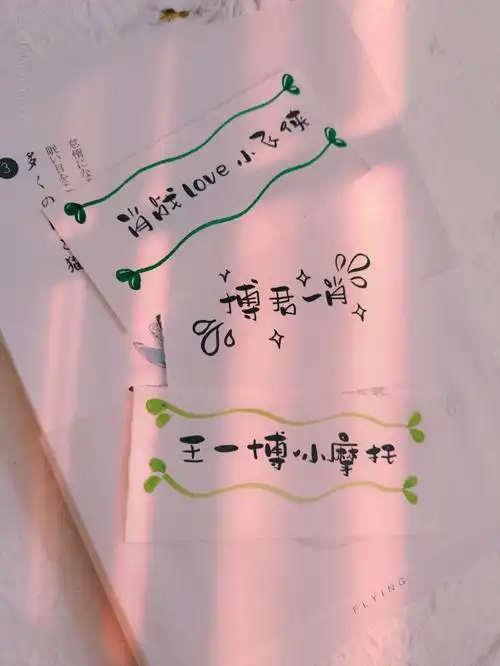 3
多くの
猫
眠い目をこ
怠惰にな
肖战love小飞侠
博君一肖
王一博小摩托
FLYING